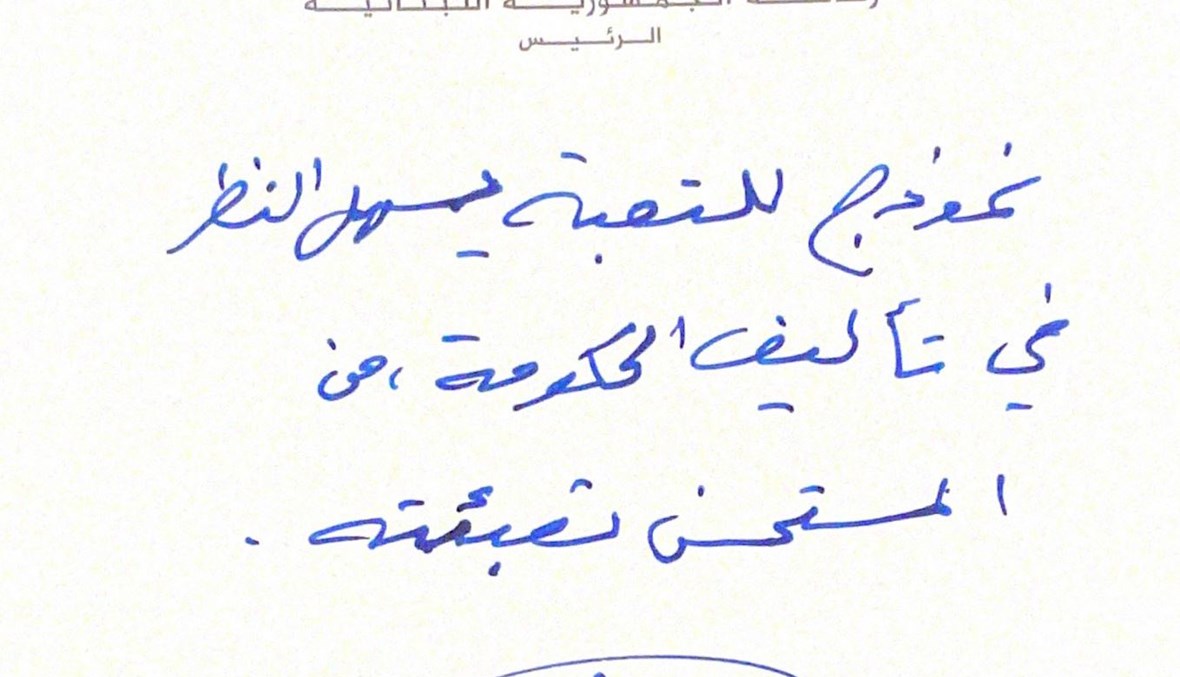 الجمهورية اللبنانية
الرئيس
نموذج للتعبة يسهل النظر
في تأليف الحكومة، من
المستحسن تعبئته.